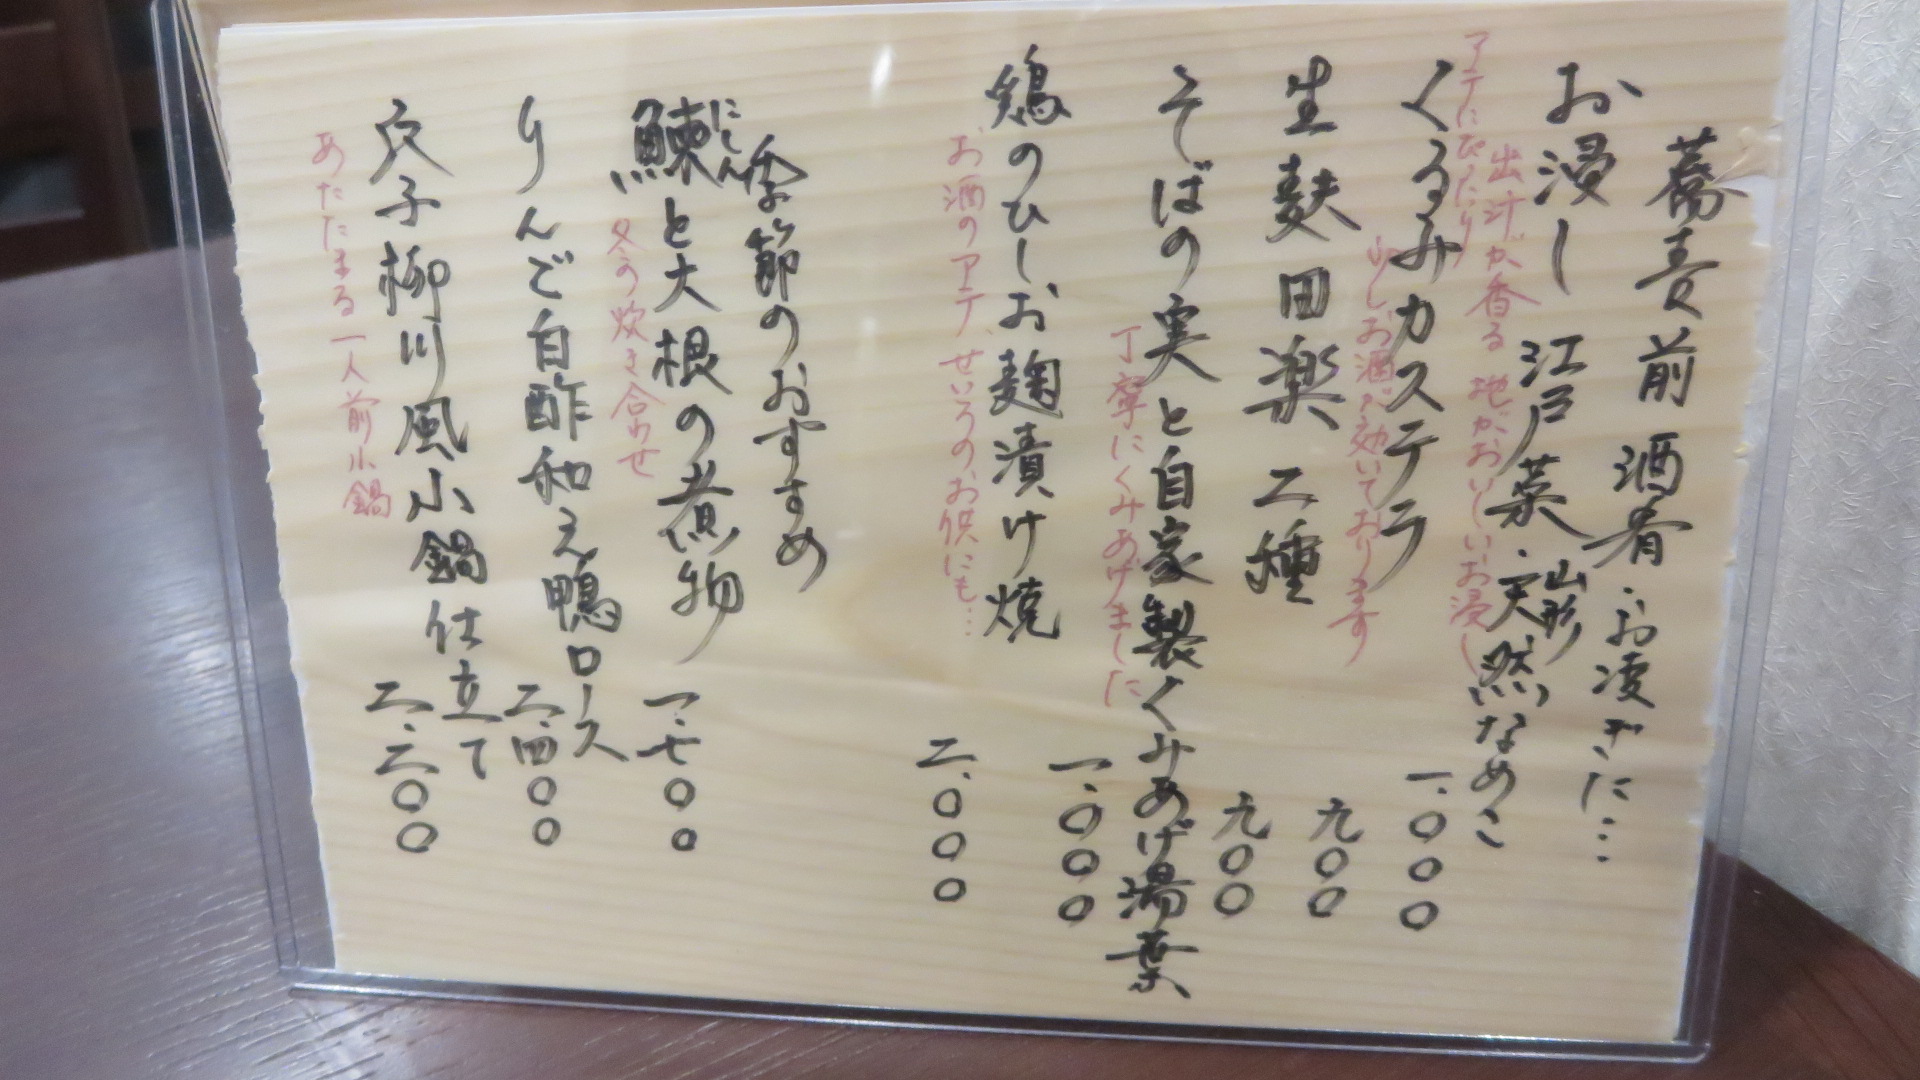 蕎麦前 酒肴・お凌ぎに…
お浸し 江戸菜・山形天然なめこ
一、〇〇〇
出汁が香る 地がおいしいお浸し
くるみカステラ
九〇〇
アテにぴったり
少しお酒が効いております
生麩田楽 二種
九〇〇
そばの実と自家製くみあげ湯葉
一、〇〇〇
丁寧にくみあげました
鶏のひしお麹漬け焼
二、〇〇〇
お酒のアテ、せいろのお供にも…
季節のおすすめ
鰊と大根の煮物
にしん
一、七〇〇
冬の炊き合わせ
りんご白酢和え鴨ロース
二、四〇〇
穴子柳川風小鍋仕立て
二、二〇〇
あたたまる一人前小鍋